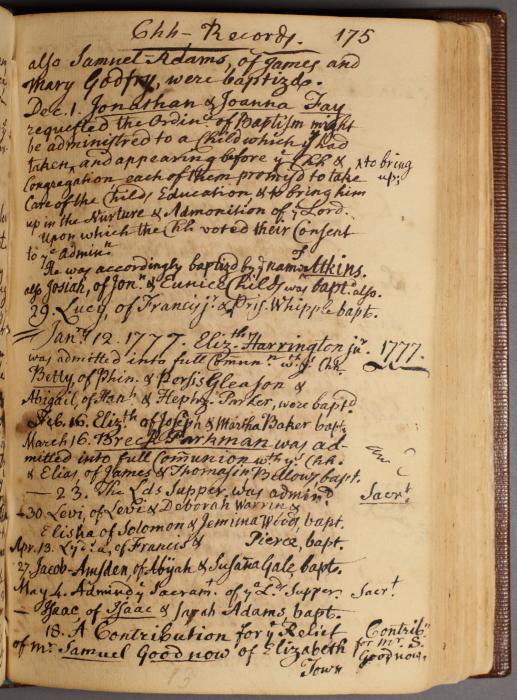 Chh- Records. 175
also Samuel Adams, of James and
Mary Godfry, were baptizd.
Dec. 1. Jonathan & Joanna Fay
requested the Ordince of Baptism might
be administred to a Child which yy had
taken, and appearing before ye Chh &
Congregation each of them promis'd to take ^ to bring up;
Care of the Childs Education & to bring him
up in the Nurture & Admonition of ye Lord.
Upon which the Chh voted their Consent
to ye Adminn
He was accordingly baptizd by ye name of Atkins.
also Josiah, of Jonn & Eunice Child, was bapt. also.
29. Lucy, of Francis jr. & Pris. Whipple bapt.
Janry 12. 1777. Elizth Harrington junr. 1777.
was admitted into full Commun wth ye Chh.
Betty, of Phin. & Persis Gleason &
Abigail, of Hanh & Hephz. Parker, were baptd
Feb. 16. Elizth of Joseph & Martha Baker bapt.
March 16. Breck Parkman was ad-
mitted into full Communion wth ye Chh.
& Elias, of James & Thomasin Bellows bapt.
- 23. The Lds Supper was adminrd Sacrt
- 30. Levi, of Levi & Deborah Warrin &
Elisha of Solomon & Jemima Wood, bapt.
Apr. 13. of Francis & Pierce, bapt.
27. Jacob-Amsden of Abijah & Susana Gale, bapt.
May 4. Adminrd ye Sacramt of ye Lds Supper. Sacrt
- Isaac of Isaac & Sarah Adams, bapt.
18. A Contribution for ye Relief Contribn
of mr. Samuel Goodnow of Elizabeth for Mr. S. Goodnow.
Town